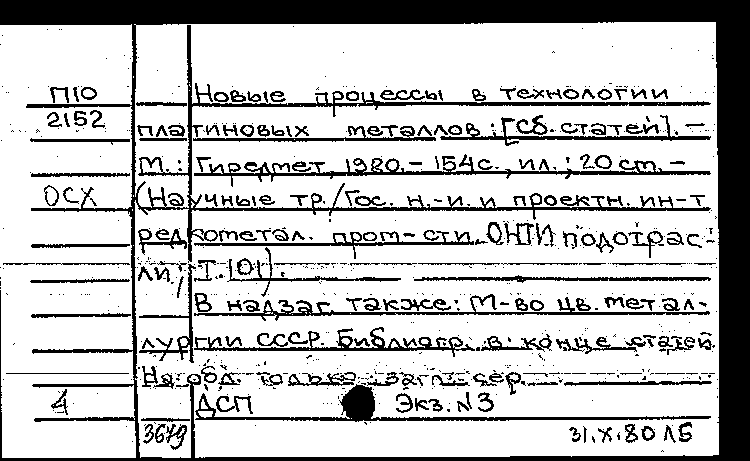 П10 Новые процессы в технологии
2152 платиновых металлов: [Сб. статей]. –
М.: Гиредмет, 1980. – 154 с., ил.; 20 см. –
ОСХ (Научные тр./Гос. н.-и. и проектн. ин-т
редкометал. пром-сти. ОНТИ подотрас-
ли; Т. 101).
В надзаг. также: М-во цв. метал-
лургии СССР. Библиогр. в конце статей
На обл. только загл. сер.
4 ДСП Экз. №3
3679 31.X.80 ЛБ